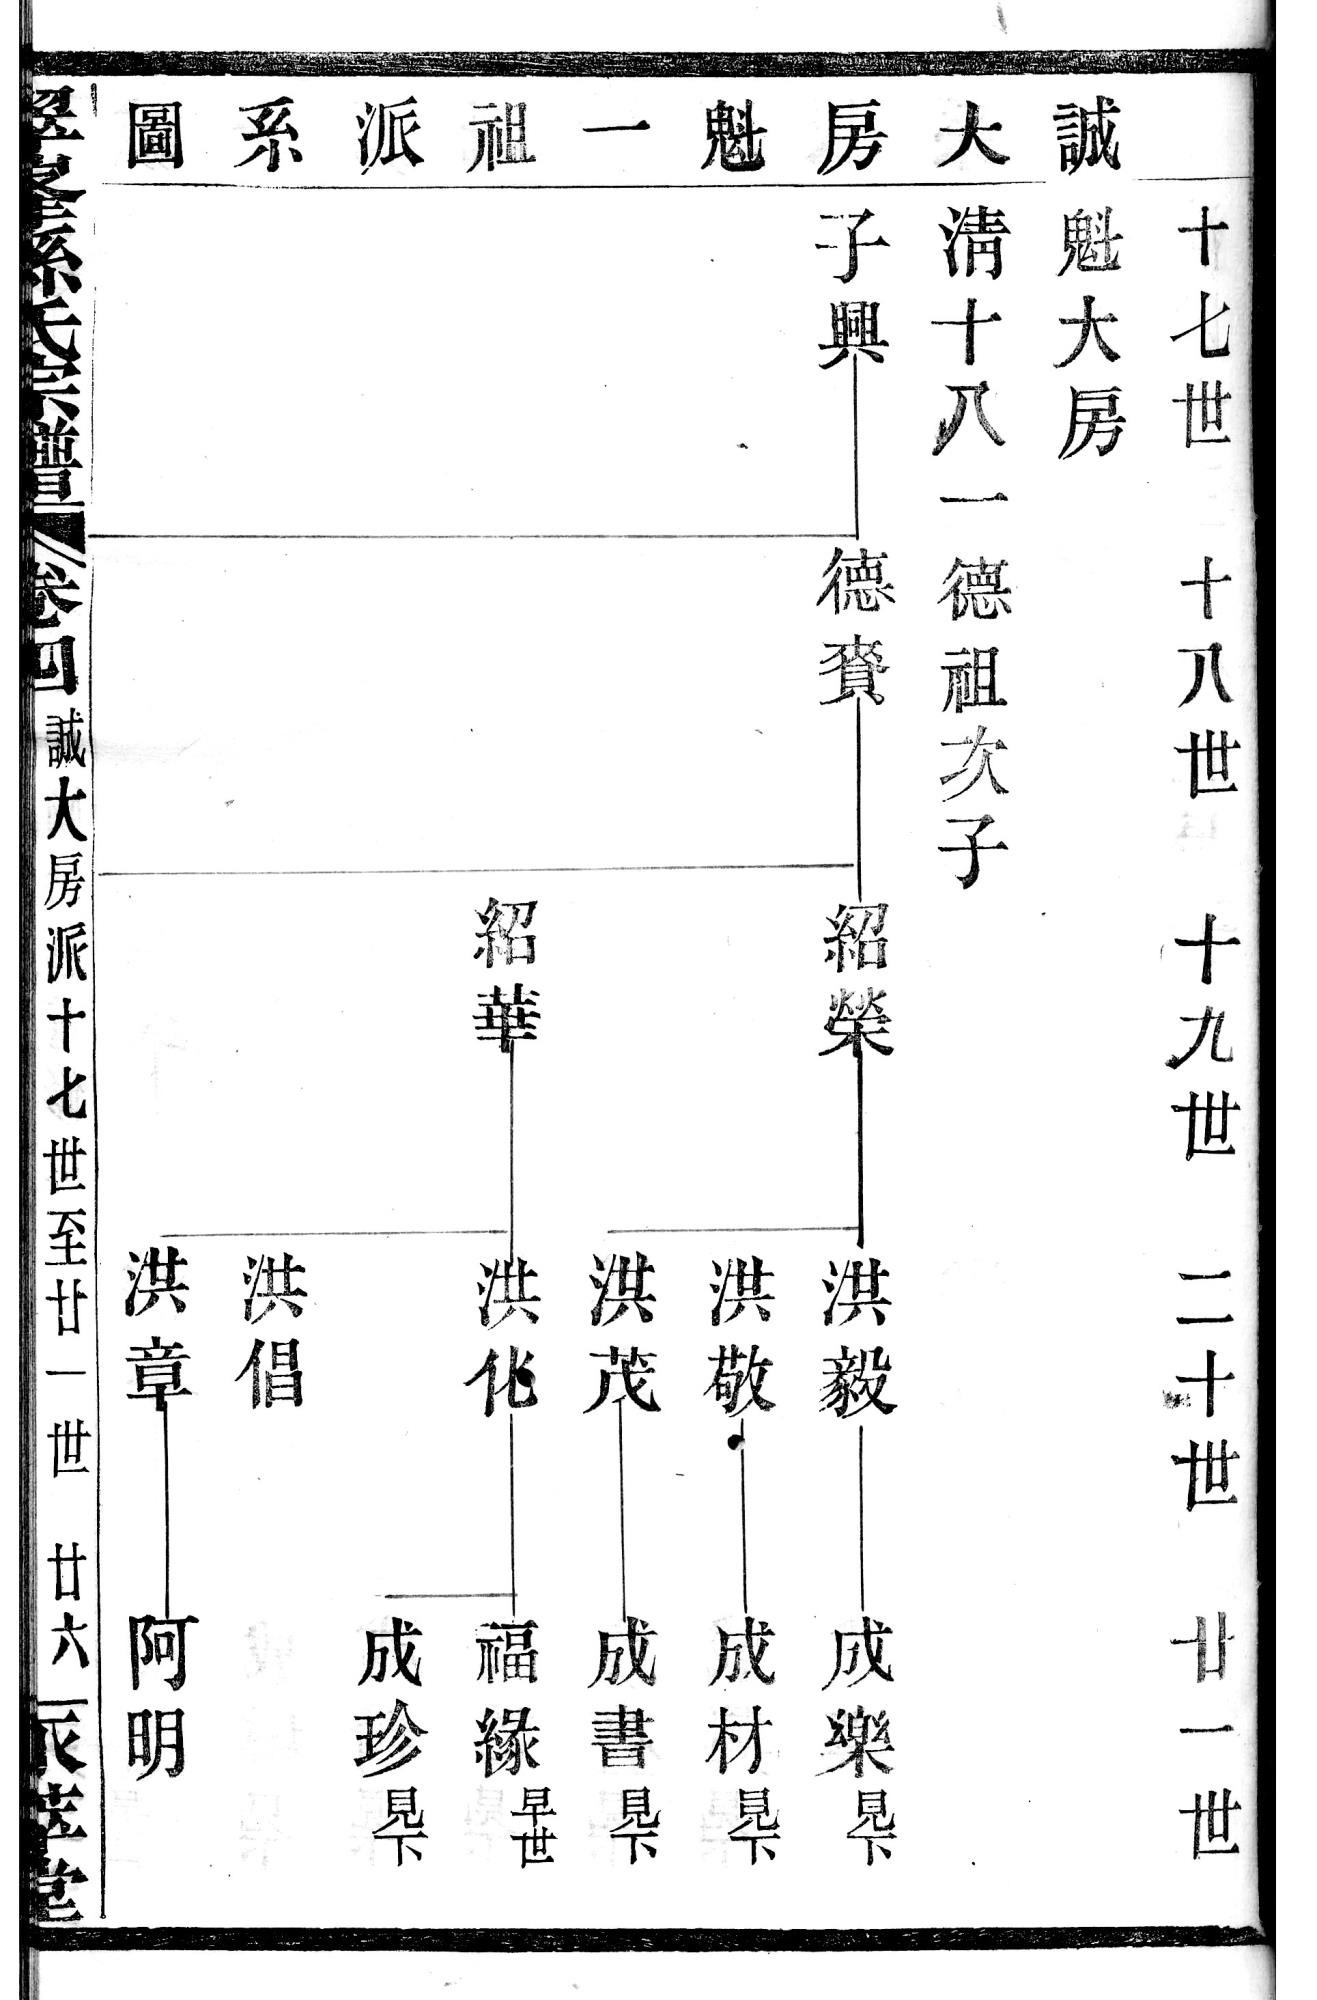 十七世 十八世 十九世 二十世 廿一世
誠大房魁一祖派系圖
魁大房
清十八一德祖次子
子興 德賚 紹榮 洪毅 成樂 見下
洪敬 成材 見下
洪茂 成書 見下
紹華 洪化 福緣 早世
成珍 見下
洪倡
洪章 阿明
孫氏宗譜 卷四 誠大房派十七世至廿一世 廿六